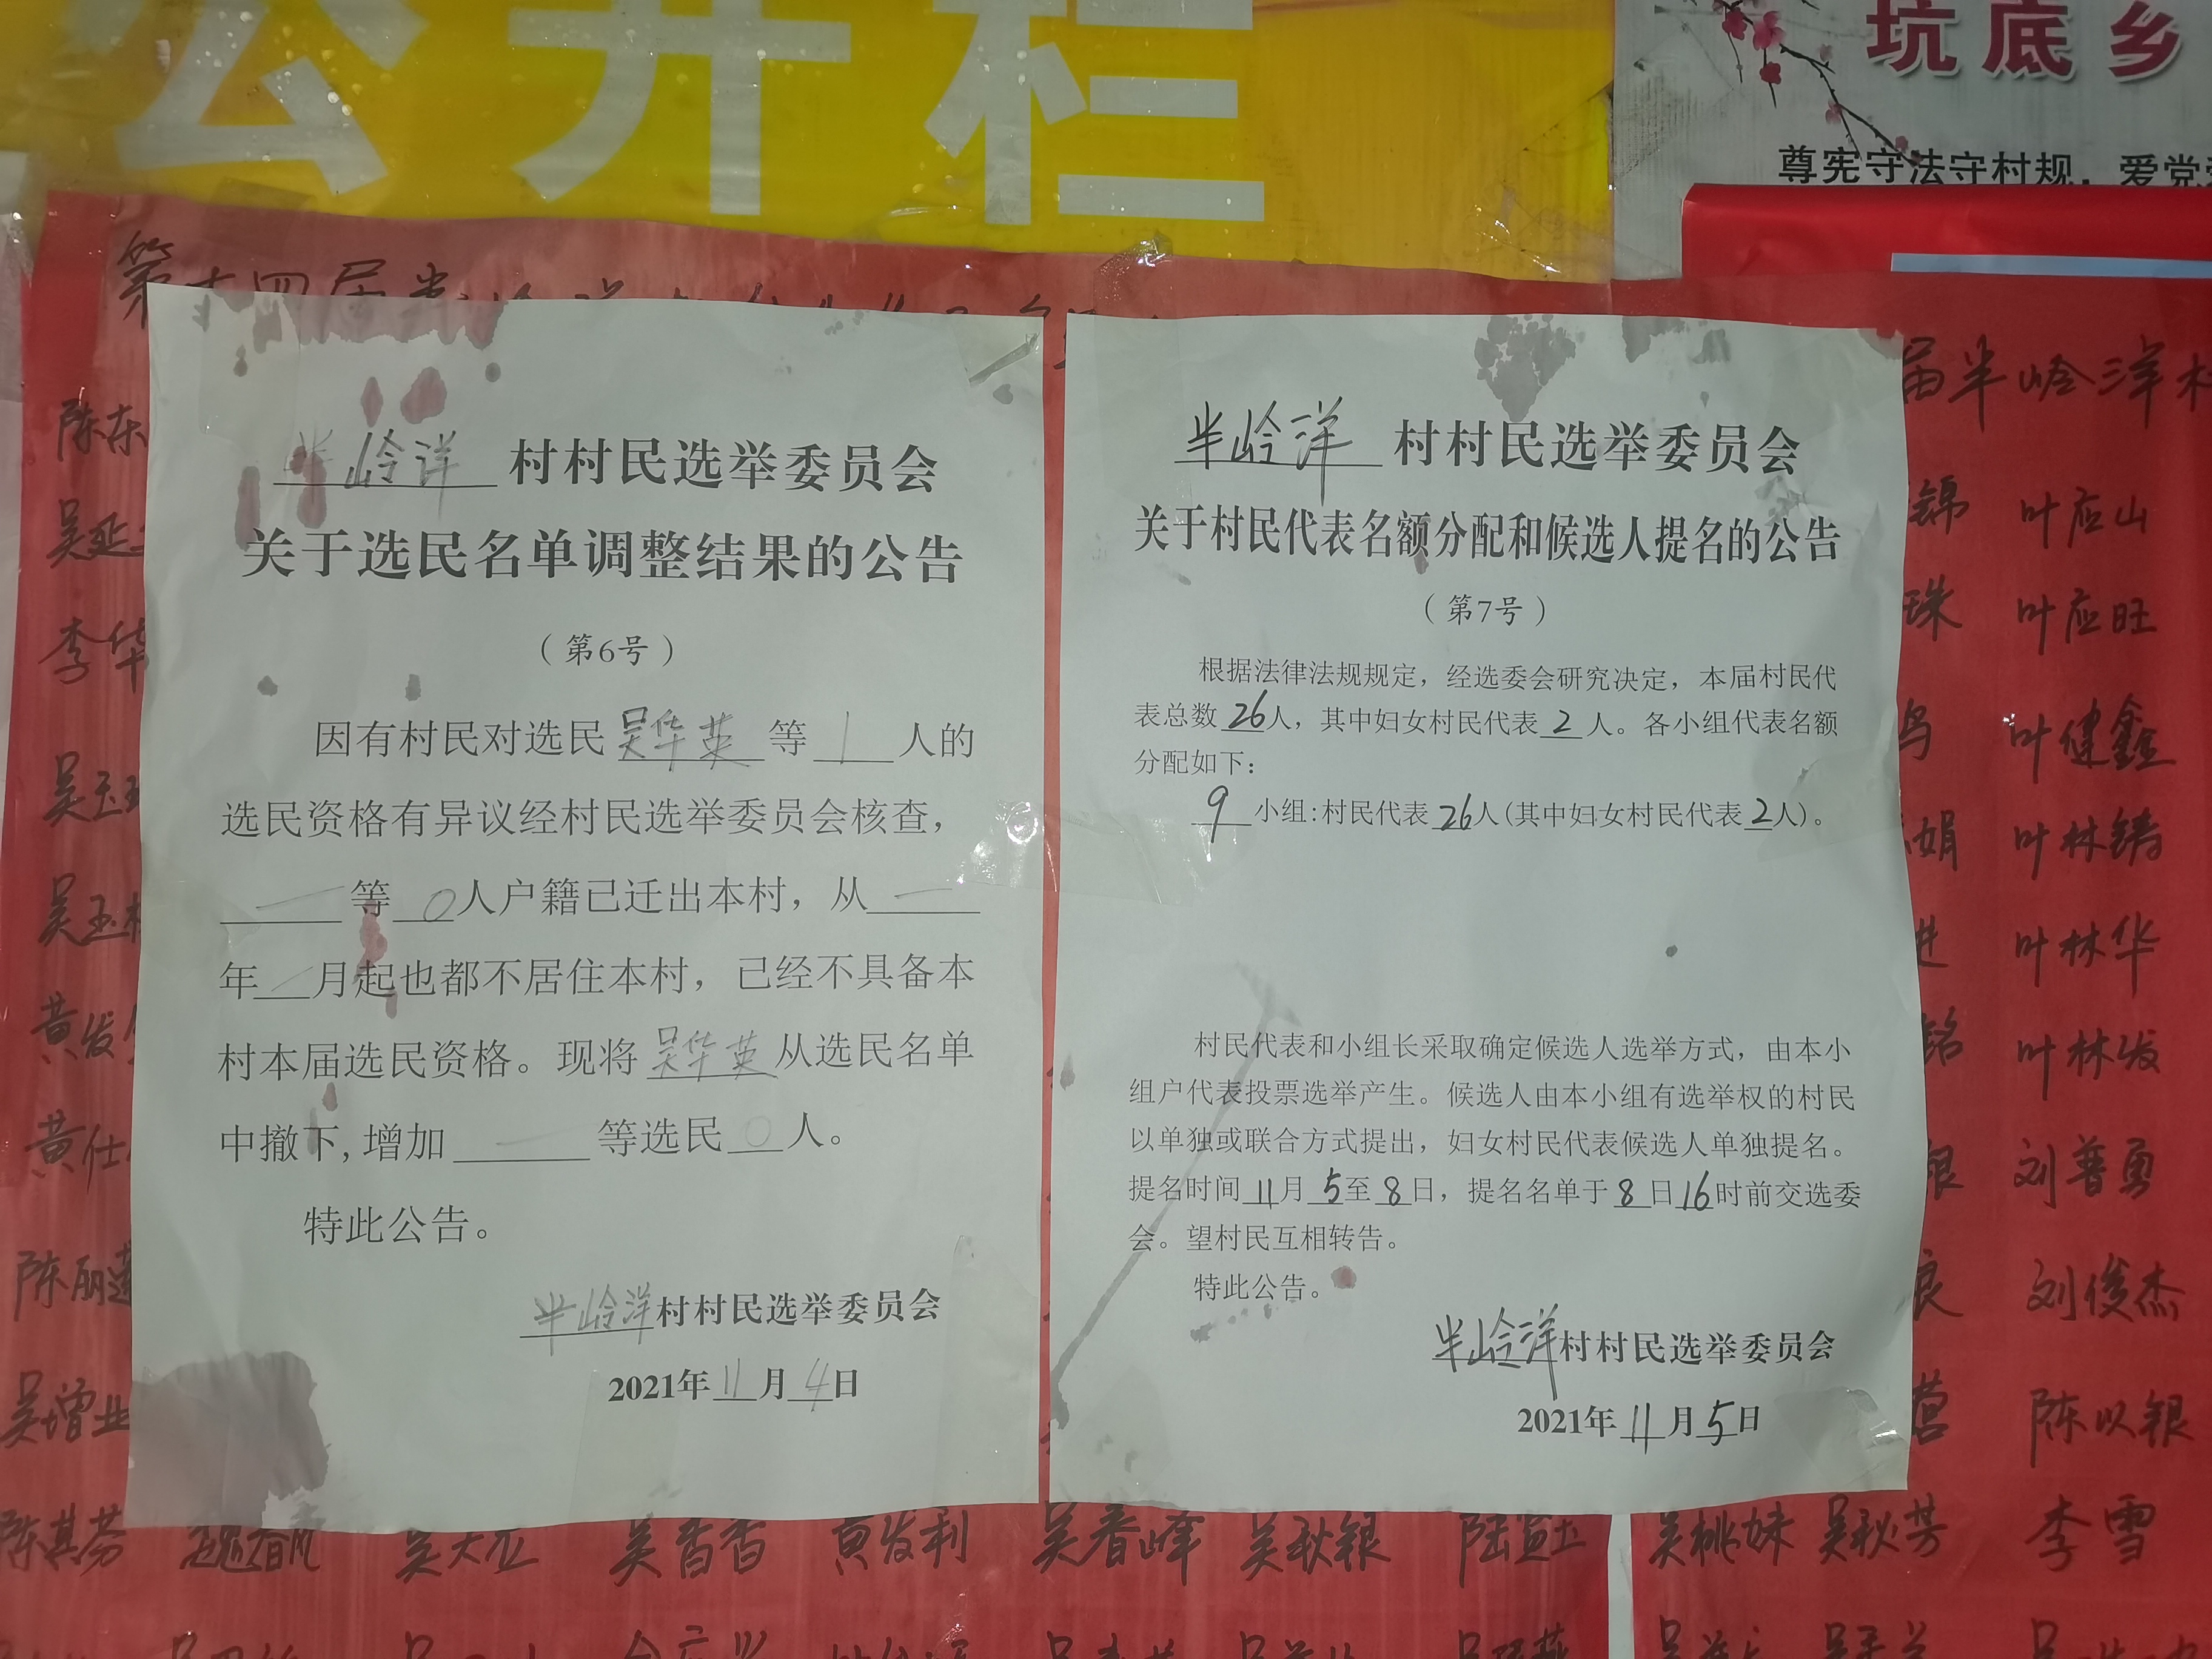 公开栏
坑底乡
尊宪守法守村规，爱党
第十四届半
届半岭洋村
半岭洋村村民选举委员会
关于选民名单调整结果的公告
（第6号）
因有村民对选民吴华英等1人的
选民资格有异议经村民选举委员会核查，
一等0人户籍已迁出本村，从一
年一月起也都不居住本村，已经不具备本
村本届选民资格。现将吴华英从选民名单
中撤下,增加一等选民0人。
特此公告。
半岭洋村村民选举委员会
2021年11月4日
半岭洋村村民选举委员会
关于村民代表名额分配和候选人提名的公告
（第7号）
根据法律法规规定，经选委会研究决定，本届村民代
表总数26人，其中妇女村民代表2人。各小组代表名额
分配如下：
9小组:村民代表26人(其中妇女村民代表2人)。
村民代表和小组长采取确定候选人选举方式，由本小
组户代表投票选举产生。候选人由本小组有选举权的村民
以单独或联合方式提出，妇女村民代表候选人单独提名。
提名时间11月5至8日，提名名单于8日16时前交选委
会。望村民互相转告。
特此公告。
半岭洋村村民选举委员会
2021年11月5日
陈东
吴延
李华
吴玉
吴玉
黄发
黄仕
陈丽莲
吴增业
锦 叶应山
珠 叶应旺
叶健鑫
娟 叶林锦
进 叶林华
铭 叶林发
银 刘普勇
良 刘俊杰
陈以银
陈其芬 魏春凤 吴大立 吴香香 黄发利 吴春峰 吴秋银 陆宜土 吴桃妹 吴秋芳 李雪